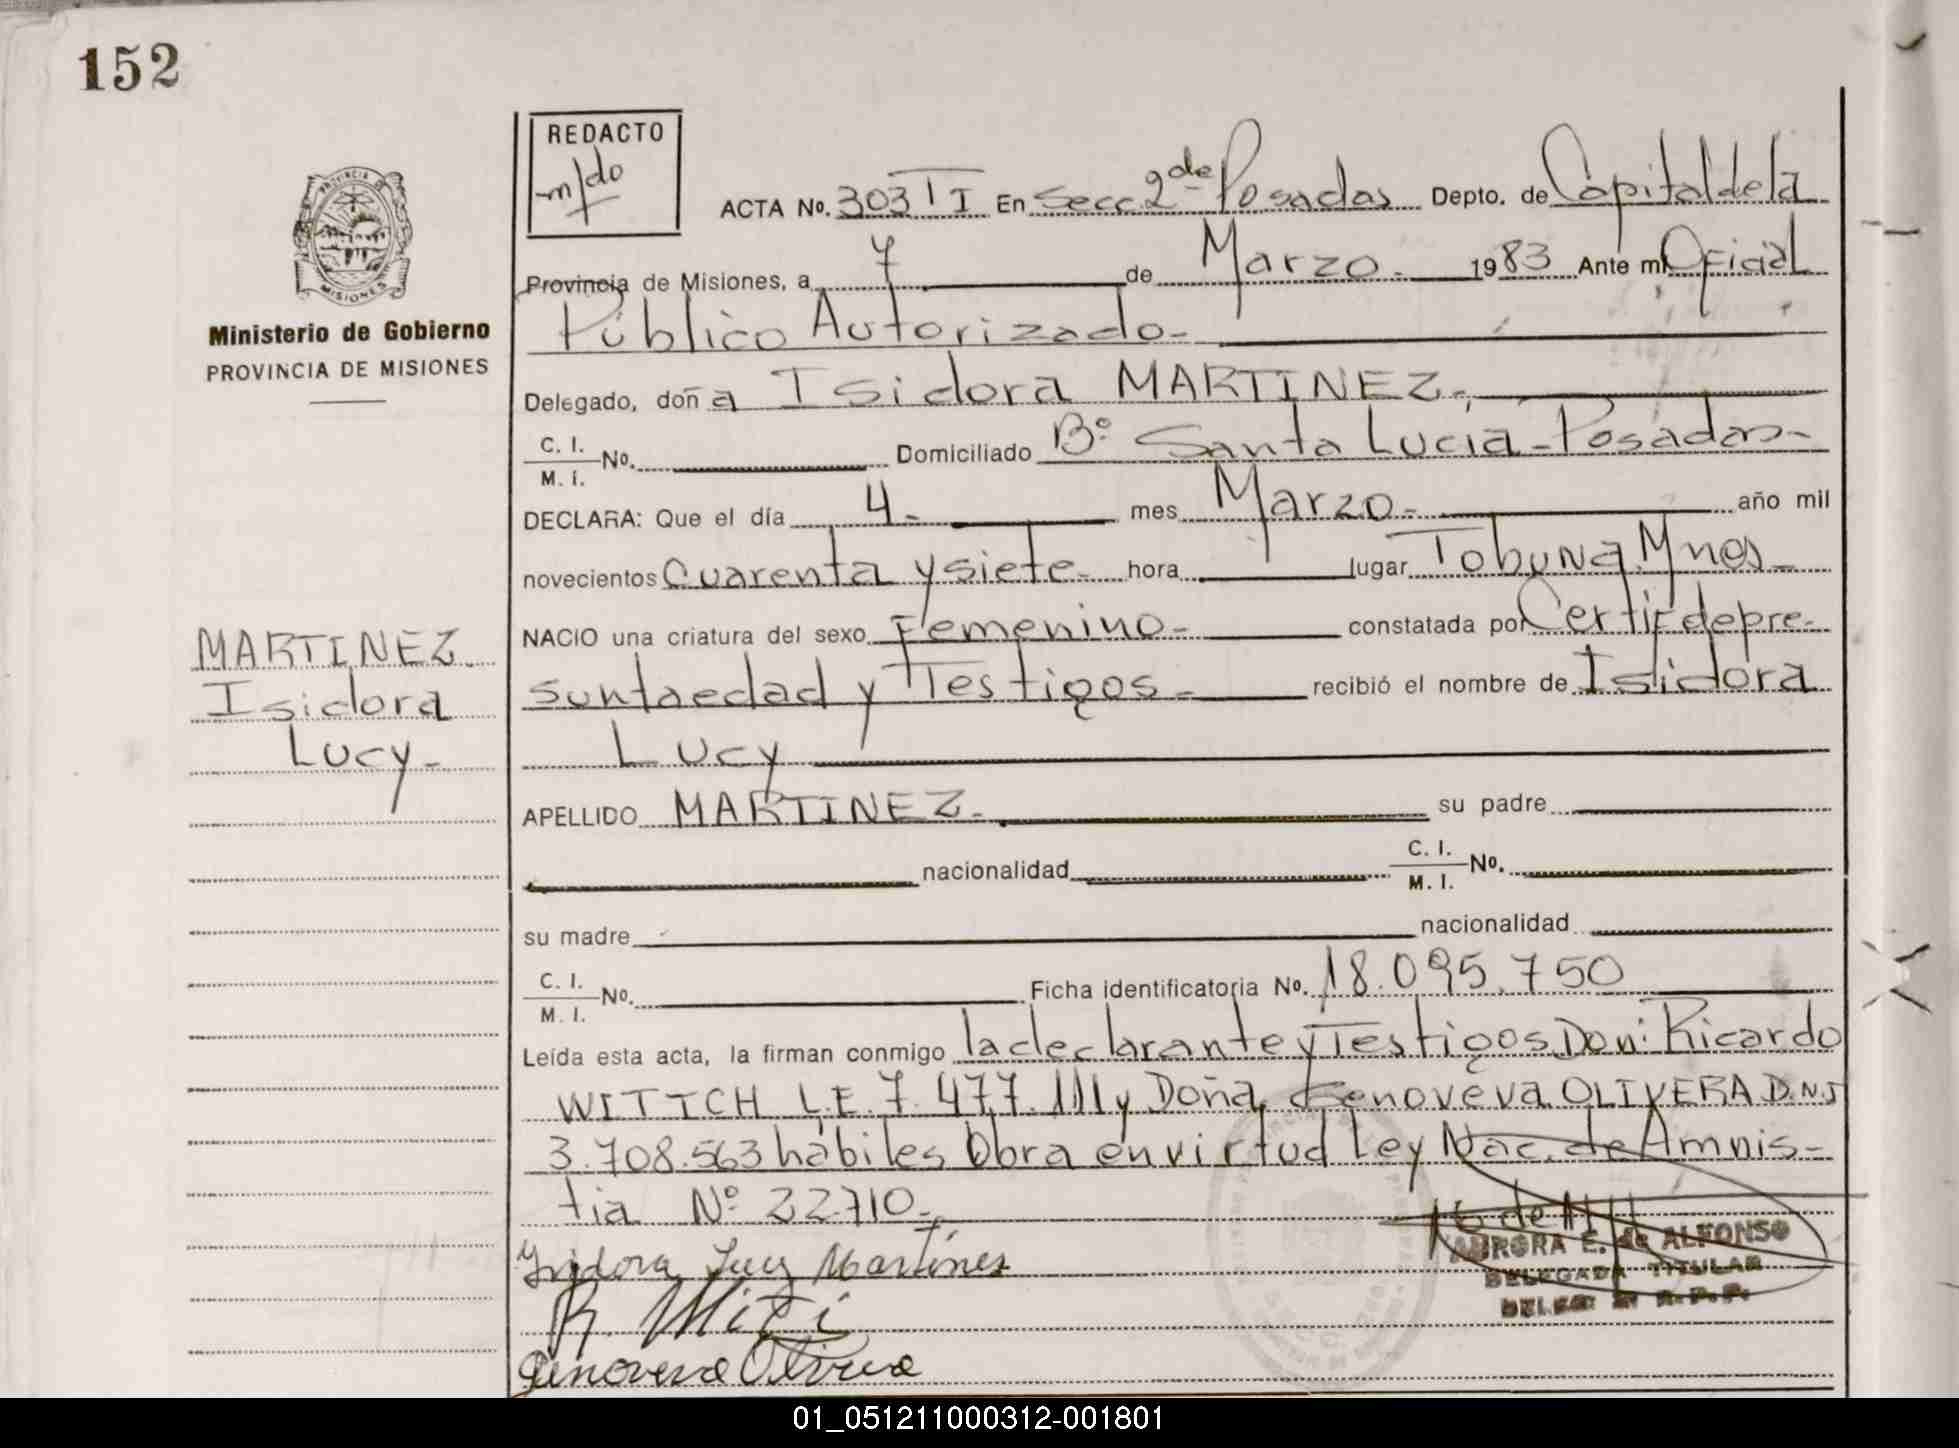 152
REDACTO
m/do
PROVINCIA DE
MISIONES
Ministerio de Gobierno
PROVINCIA DE MISIONES
ACTA No. 303 T I En Secc. 2da Posadas Depto. de Capital de la
Provincia de Misiones, a 7 de Marzo - 1983 Ante mi Oficial
Público Autorizado -
Delegado, doña Isidora MARTINEZ.,
C. I.
M. I. No. Domiciliado Bº Santa Lucia - Posadas -
DECLARA: Que el día 4 - mes Marzo - año mil
novecientos Cuarenta y siete - hora lugar Tobuna, Mnes -
NACIO una criatura del sexo Femenino - constatada por Certif de pre-
sunta edad y Testigos - recibió el nombre de Isidora
Lucy
MARTINEZ
Isidora
Lucy -
APELLIDO MARTINEZ - su padre
nacionalidad C. I.
M. I. No.
su madre nacionalidad
C. I.
M. I. No. Ficha identificatoria No. 18.095.750
Leída esta acta, la firman conmigo la declarante y Testigos Don: Ricardo
WITTICH L.E. 7.477.111 y Doña Genoveva OLIVERA D.N.I
3.708.563 hábiles Obra en virtud Ley Nac. de Amnis-
tia Nº 22710 -
Isidora Lucy Martínes
Genoveva Olivera
AURORA E. de ALFONSO
DELEGADA TITULAR
01_051211000312-001801